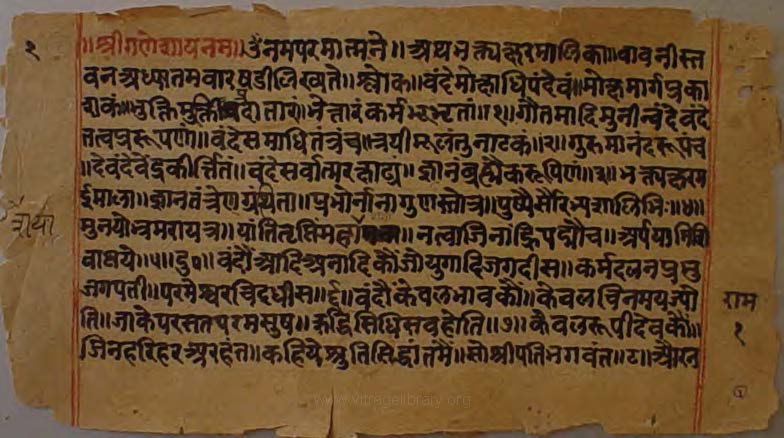 १
॥श्रीगणेशायनमः॥ ॐनमपरमात्मने॥ अथभक्त्यक्षरमालिका॥ बावनीस्त
वनअध्यातमवारषडीलिख्यते॥ श्लोक॥ वंदेमोक्षाधिपंदेवं॥ मोक्षमार्गप्रका
शकं॥ भुक्तिमुक्ति दातारं॥ भेत्तारंकर्मभूभृतां॥१॥ गौतमादिमुनीन्वंदेवंदे
तत्वप्ररूपणं॥ वंदेसमाधितंत्रंच॥ त्रयीमूलंतुनाटकं॥२॥ गुरुमानंदरूपंच
॥देवंदेवेंद्रकीर्त्तितं॥ वंदेसर्वात्मरक्षाढ्यं॥ ज्ञानंब्रह्मैकरूपिणं॥३॥ भक्त्यक्षरम
ईमाला॥ ज्ञानवंत्रेणग्रंथिता॥ प्रभोर्नानागुणस्तोत्र॥ पुष्पै ॥४॥
मुनयोभ्रमरायत्र॥ यांतितृप्तिं ॥ नत्वाजिनांह्रिपद्मौच॥ अर्पयामि
वाप्तये॥५॥ दु०॥ वंदौंआदिअनादिकौंजोयुगादिजगदीस॥ कर्मदलनप्रभु
जगपती॥ परमेश्वरचिदधीस॥६॥ वंदौंकेवलभावकौं॥ केवलचिनमयज्यो
ति॥ जाकेपरसतपरमसुष॥ ऋद्धिसिधिसवहोति॥७॥ केवलरूपीदेवकौं॥
जिनहरिहरअरहंत॥ कहियेश्रुतिसिद्धांतमैं॥ सोश्रीपतिभगवंत॥८॥ औरन
राम
१
www.vitragelibrary.org